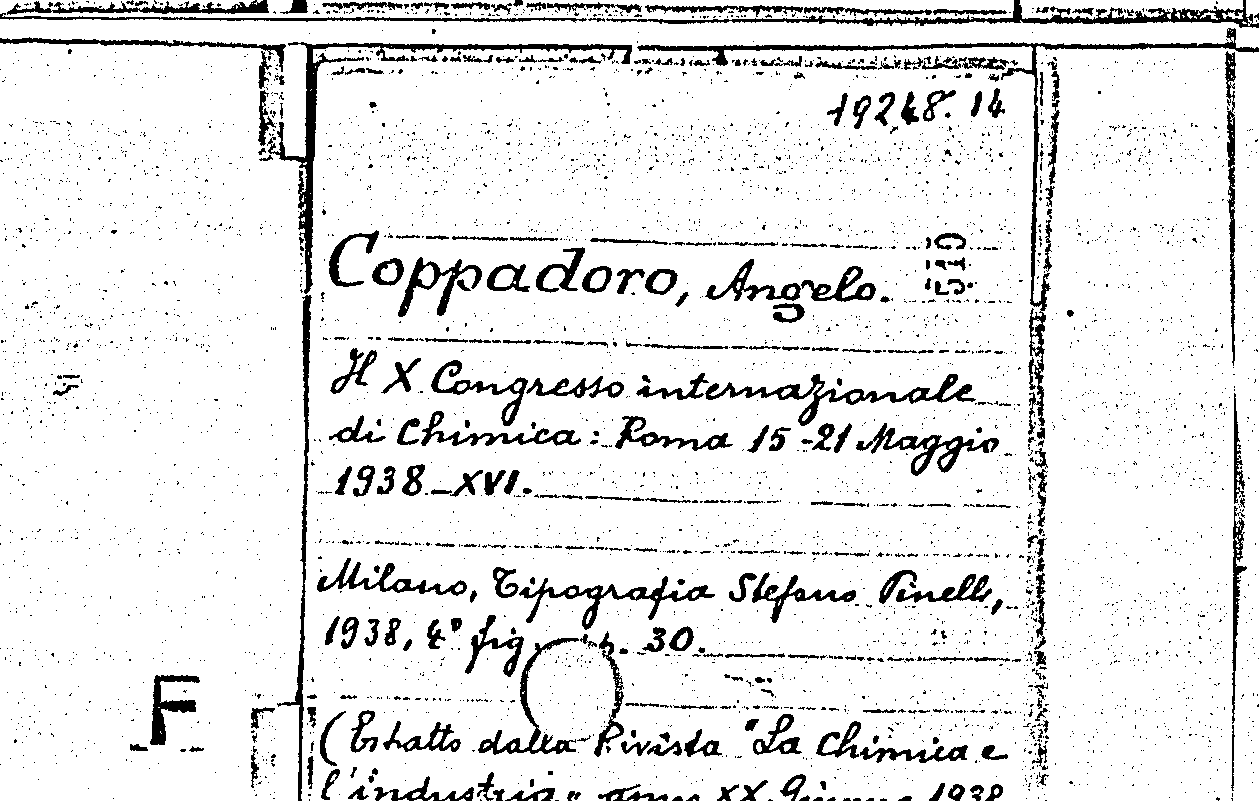 19248. 14
Coppadoro, Angelo.
Il X Congresso internazionale
di Chimica: Roma 15-21 Maggio
1938-XVI.
Milano, Tipografia Stefano Pinelli,
1938, 4° fig. p. 30.
(Estratto dalla Rivista "La Chimica e
l'industria" anno XX Giugno 1938
F